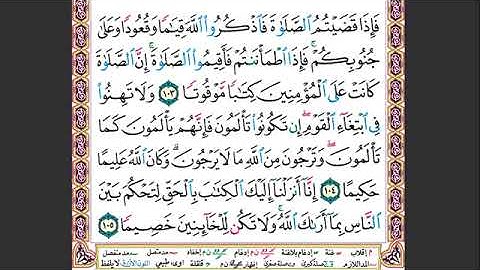 فَإِذَا قَضَيْتُمُ ٱلصَّلَوٰةَ فَٱذْكُرُوا۟ ٱللَّهَ قِيَـٰمًا وَقُعُودًا وَعَلَىٰ
جُنُوبِكُمْ ۚ فَإِذَا ٱطْمَأْنَنتُمْ فَأَقِيمُوا۟ ٱلصَّلَوٰةَ ۚ إِنَّ ٱلصَّلَوٰةَ
كَانَتْ عَلَى ٱلْمُؤْمِنِينَ كِتَـٰبًا مَّوْقُوتًا ١٠٣ وَلَا تَهِنُوا۟
فِى ٱبْتِغَآءِ ٱلْقَوْمِ ۖ إِن تَكُونُوا۟ تَأْلَمُونَ فَإِنَّهُمْ يَأْلَمُونَ كَمَا
تَأْلَمُونَ ۖ وَتَرْجُونَ مِنَ ٱللَّهِ مَا لَا يَرْجُونَ ۗ وَكَانَ ٱللَّهُ عَلِيمًا
حَكِيمًا ١٠٤ إِنَّآ أَنزَلْنَآ إِلَيْكَ ٱلْكِتَـٰبَ بِٱلْحَقِّ لِتَحْكُمَ بَيْنَ
ٱلنَّاسِ بِمَآ أَرَىٰكَ ٱللَّهُ ۚ وَلَا تَكُن لِّلْخَآئِنِينَ خَصِيمًا ١٠٥